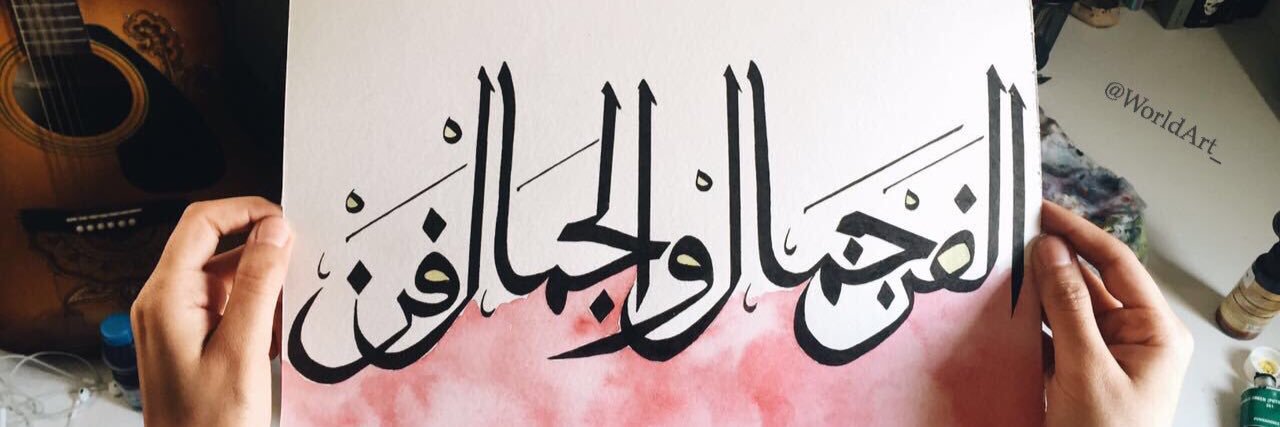 الفن جمال والجمال فن
@WorldArt_